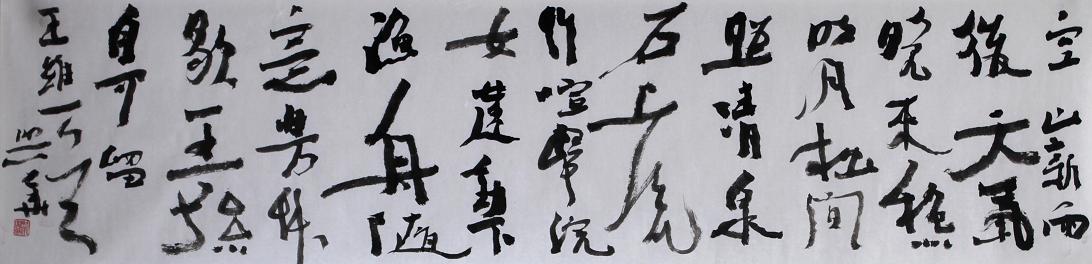 空山新雨
後天氣
晚来秋
明月松间
照清泉
石上流
竹喧歸浣
女蓮動下
漁舟随
意春芳
歇王孫
自可留
王維一首